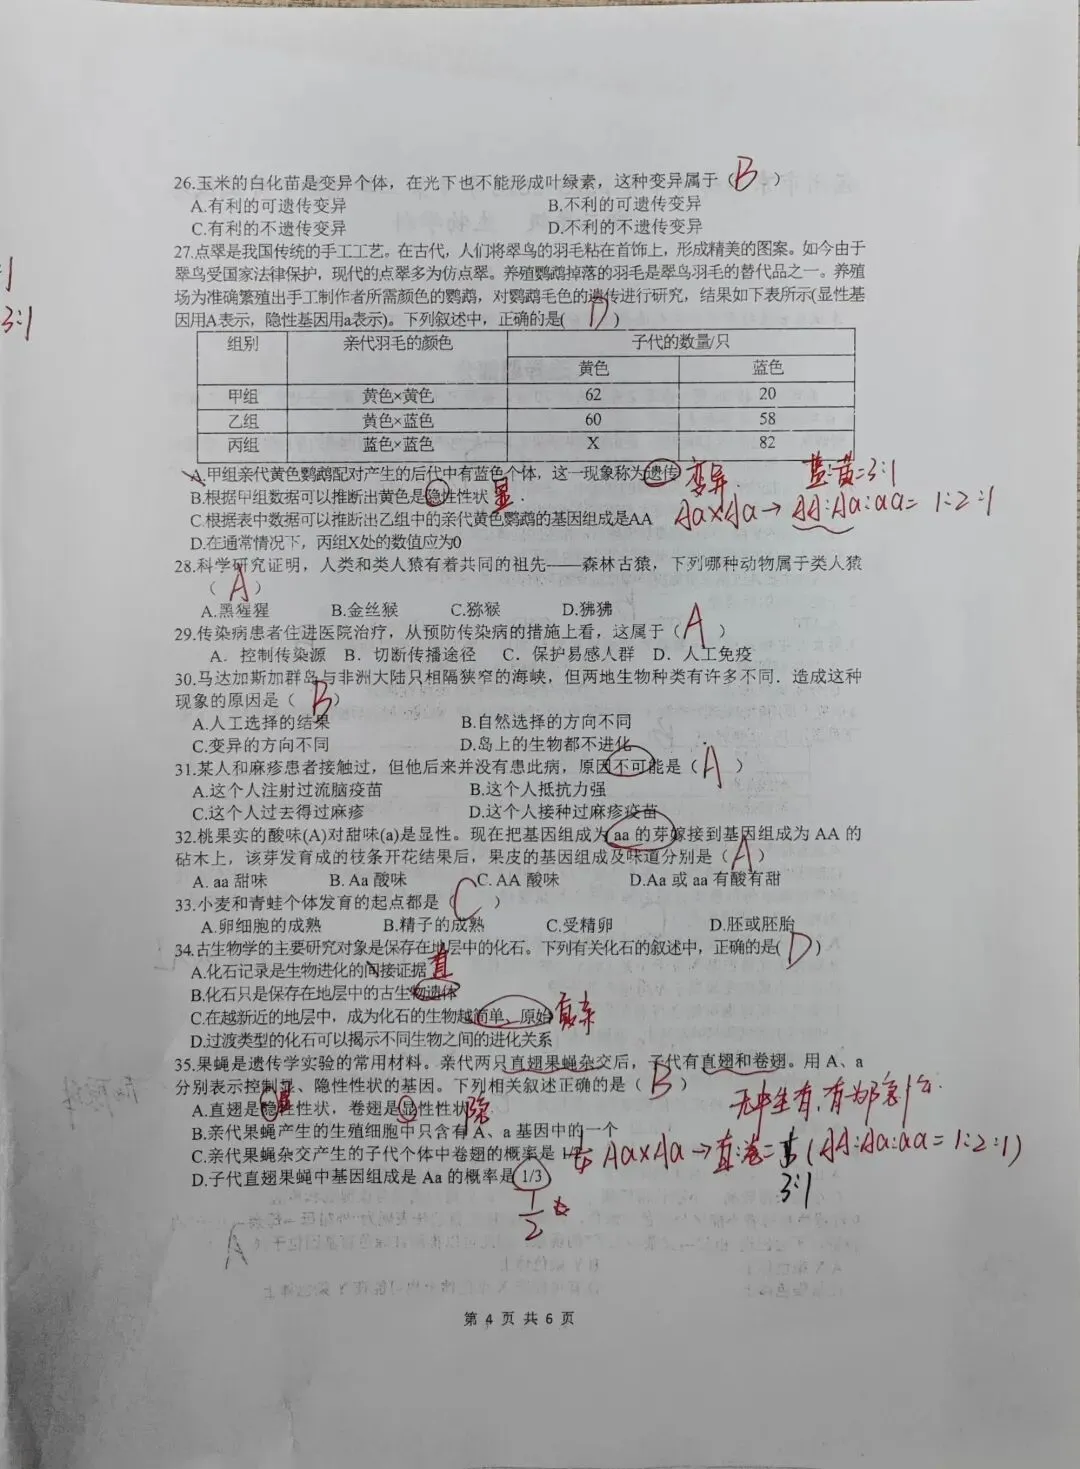 26.玉米的白化苗是变异个体，在光下也不能形成叶绿素，这种变异属于（B ）
A.有利的可遗传变异 B.不利的可遗传变异
C.有利的不遗传变异 D.不利的不遗传变异
27.点翠是我国传统的手工工艺。在古代，人们将翠鸟的羽毛粘在首饰上，形成精美的图案。如今由于
:1
翠鸟受国家法律保护，现代的点翠多为仿点翠。养殖鹦鹉掉落的羽毛是翠鸟羽毛的替代品之一。养殖
场为准确繁殖出手工制作者所需颜色的鹦鹉，对鹦鹉毛色的遗传进行研究，结果如下表所示(显性基
3:1
因用A表示，隐性基因用a表示)。下列叙述中，正确的是( D )
组别 亲代羽毛的颜色 子代的数量/只
黄色 蓝色
甲组 黄色×黄色 62 20
乙组 黄色×蓝色 60 58
丙组 蓝色×蓝色 X 82
A.甲组亲代黄色鹦鹉配对产生的后代中有蓝色个体，这一现象称为遗传 变异. 蓝:黄=3:1
B.根据甲组数据可以推断出黄色是隐性性状 显.
Aa×Aa→AA:Aa:aa=1:2:1
C.根据表中数据可以推断出乙组中的亲代黄色鹦鹉的基因组成是AA
D.在通常情况下，丙组X处的数值应为0
28.科学研究证明，人类和类人猿有着共同的祖先——森林古猿，下列哪种动物属于类人猿
（ A ）
A.黑猩猩 B.金丝猴 C.猕猴 D.狒狒
29.传染病患者住进医院治疗，从预防传染病的措施上看，这属于（ A ）
A．控制传染源 B．切断传播途径 C．保护易感人群 D．人工免疫
30.马达加斯加群岛与非洲大陆只相隔狭窄的海峡，但两地生物种类有许多不同．造成这种
现象的原因是（ B ）
A.人工选择的结果 B.自然选择的方向不同
C.变异的方向不同 D.岛上的生物都不进化
31.某人和麻疹患者接触过，但他后来并没有患此病，原因不可能是（ A ）
A.这个人注射过流脑疫苗 B.这个人抵抗力强
C.这个人过去得过麻疹 D.这个人接种过麻疹疫苗
32.桃果实的酸味(A)对甜味(a)是显性。现在把基因组成为 aa 的芽嫁接到基因组成为 AA 的
砧木上，该芽发育成的枝条开花结果后，果皮的基因组成及味道分别是（ A ）
A. aa 甜味 B. Aa 酸味 C. AA 酸味 D.Aa 或 aa 有酸有甜
33.小麦和青蛙个体发育的起点都是（ C ）
A.卵细胞的成熟 B.精子的成熟 C.受精卵 D.胚或胚胎
34.古生物学的主要研究对象是保存在地层中的化石。下列有关化石的叙述中，正确的是( D )
A.化石记录是生物进化的间接证据 直
B.化石只是保存在地层中的古生物遗体
C.在越新近的地层中，成为化石的生物越简单、原始 复杂
D.过渡类型的化石可以揭示不同生物之间的进化关系
35.果蝇是遗传学实验的常用材料。亲代两只直翅果蝇杂交后，子代有直翅和卷翅。用 A、a
分别表示控制显、隐性性状的基因。下列相关叙述正确的是（ B ）
无中生有,有为隐性.
A.直翅是隐性性状，卷翅是显性性状 显 隐
B.亲代果蝇产生的生殖细胞中只含有 A、a 基因中的一个
C.亲代果蝇杂交产生的子代个体中卷翅的概率是
Aa×Aa→直:卷= (AA:Aa:aa=1:2:1)
3:1
D.子代直翅果蝇中基因组成是 Aa 的概率是 1/3
1/2
A
第 4 页 共 6 页